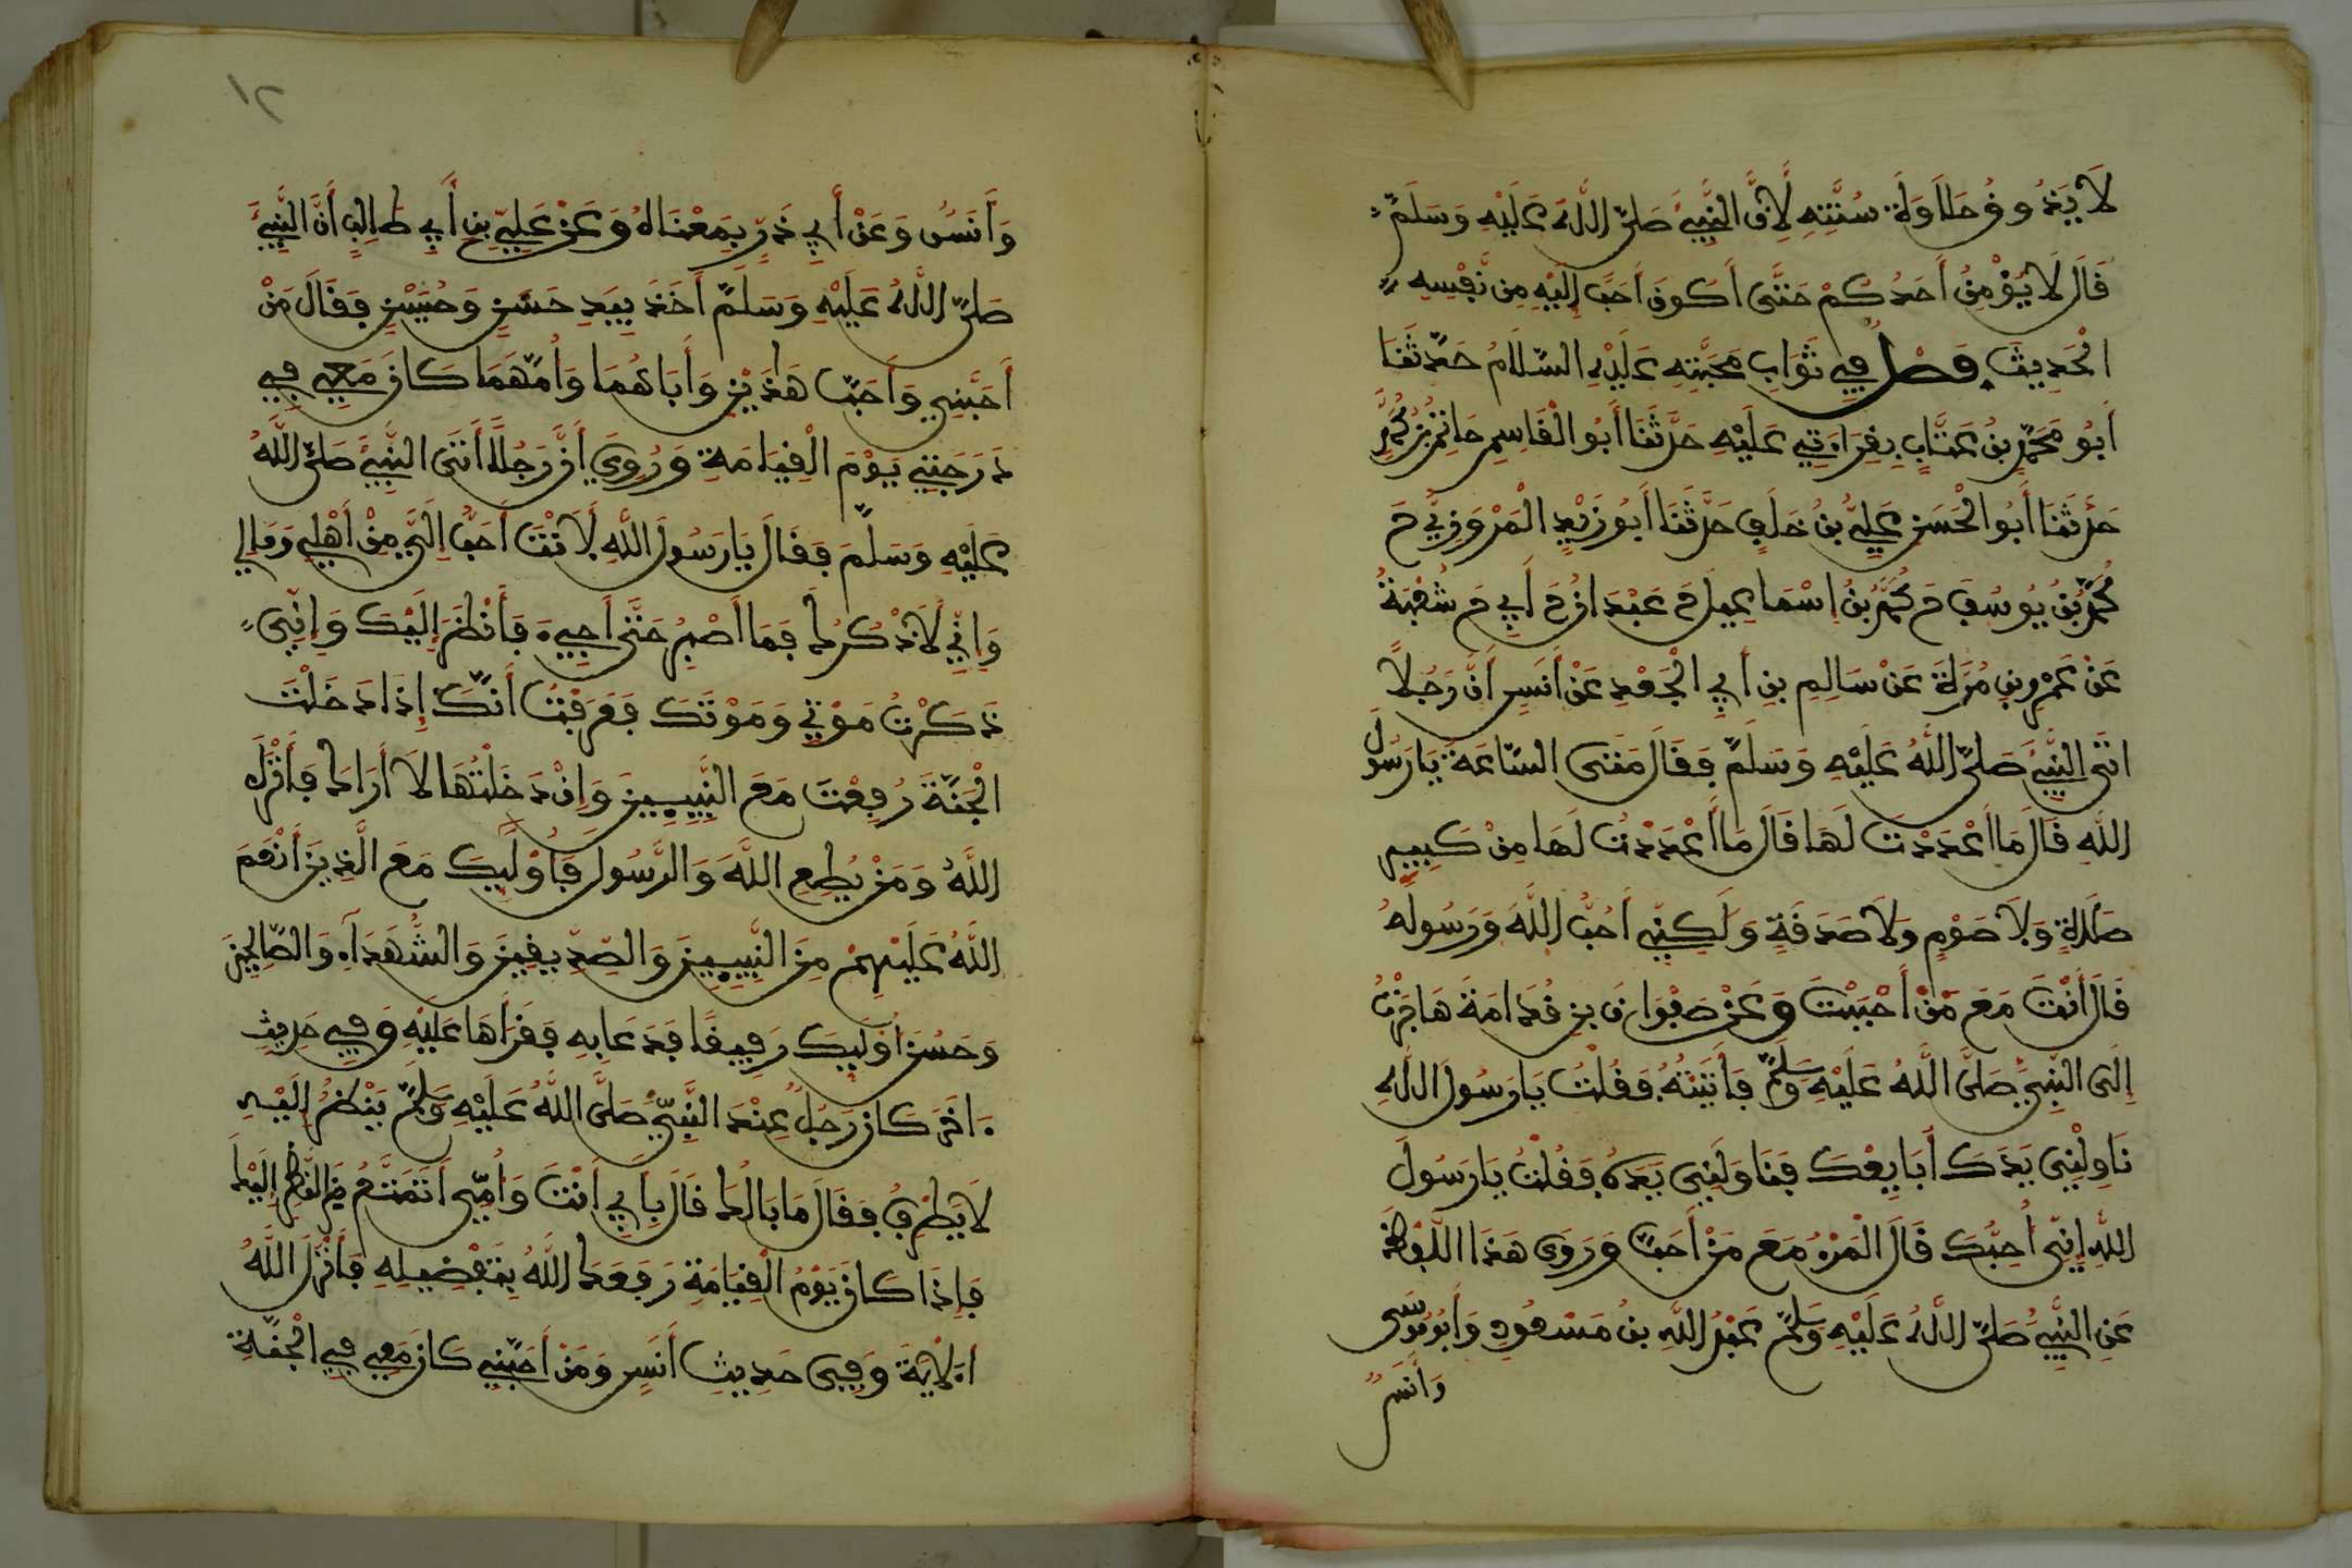 لَا يَذُوقُ حَلَاوَةَ سُنَّتِهِ لِأَنَّ النَّبِيَّ صَلَّى اللَّهُ عَلَيْهِ وَسَلَّمَ
قَالَ لَا يُؤْمِنُ أَحَدُكُمْ حَتَّى أَكُونَ أَحَبَّ إِلَيْهِ مِن نَّفْسِهِ
الْحَدِيثَ فَصْلٌ فِي ثَوَابِ مَحَبَّتِهِ عَلَيْهِ السَّلَامُ حَدَّثَنَا
أَبُو مُحَمَّدِ بْنُ عَتَّابٍ بِقِرَاءَتِي عَلَيْهِ حَدَّثَنَا أَبُو الْقَاسِمِ حَاتِمُ بْنُ مُحَمَّدٍ
حَدَّثَنَا أَبُو الْحَسَنِ عَلِيُّ بْنُ خَلَفٍ حَدَّثَنَا أَبُو زَيْدٍ الْمَرْوَزِيُّ ح
مُحَمَّدُ بْنُ يُوسُفَ ح مُحَمَّدُ بْنُ إِسْمَاعِيلَ ح عَبْدَانُ ح أَبِي ح شُعْبَةُ
عَنْ عَمْرِو بْنِ مُرَّةَ عَنْ سَالِمِ بْنِ أَبِي الْجَعْدِ عَنْ أَنَسٍ أَنَّ رَجُلًا
اتَى النَّبِيَّ صَلَّى اللَّهُ عَلَيْهِ وَسَلَّمَ فَقَالَ مَتَى السَّاعَةُ يَا رَسُولَ
اللَّهِ قَالَ مَا أَعْدَدْتَ لَهَا قَالَ مَا أَعْدَدْتُ لَهَا مِنْ كَبِيرِ
صَلَاةٍ وَلَا صَوْمٍ وَلَا صَدَقَةٍ وَلَكِنِّي أُحِبُّ اللَّهَ وَرَسُولَهُ
قَالَ أَنْتَ مَعَ مَنْ أَحْبَبْتَ وَعَنْ صَفْوَانَ بْنِ قُدَامَةَ هَاجَرْتُ
إِلَى النَّبِيِّ صَلَّى اللَّهُ عَلَيْهِ وَسَلَّمَ فَأَتَيْتُهُ فَقُلْتُ يَا رَسُولَ اللَّهِ
نَاوِلْنِي يَدَكَ أُبَايِعْكَ فَنَاوَلَنِي يَدَهُ فَقُلْتُ يَا رَسُولَ
اللَّهِ إِنِّي أُحِبُّكَ قَالَ الْمَرْءُ مَعَ مَنْ أَحَبَّ وَرَوَى هَذَا اللَّفْظَ
عَنِ النَّبِيِّ صَلَّى اللَّهُ عَلَيْهِ وَسَلَّمَ عَبْدُ اللَّهِ بْنُ مَسْعُودٍ وَأَبُو مُوسَى
وَأَنَسٌ
١٢
وَأَنَسٌ وَعَنْ أَبِي ذَرٍّ بِمَعْنَاهُ وَعَنْ عَلِيِّ بْنِ أَبِي طَالِبٍ أَنَّ النَّبِيَّ
صَلَّى اللَّهُ عَلَيْهِ وَسَلَّمَ أَخَذَ بِيَدِ حَسَنٍ وَحُسَيْنٍ فَقَالَ مَنْ
أَحَبَّنِي وَأَحَبَّ هَذَيْنِ وَأَبَاهُمَا وَأُمَّهُمَا كَانَ مَعِي فِي
دَرَجَتِي يَوْمَ الْقِيَامَةِ وَرُوِيَ أَنَّ رَجُلًا أَتَى النَّبِيَّ صَلَّى اللَّهُ
عَلَيْهِ وَسَلَّمَ فَقَالَ يَا رَسُولَ اللَّهِ لَأَنْتَ أَحَبُّ إِلَيَّ مِنْ أَهْلِي وَمَالِي
وَإِنِّي لَأَذْكُرُكَ فَمَا أَصْبِرُ حَتَّى أَجِيءَ فَأَنْظُرَ إِلَيْكَ وَإِنِّي
ذَكَرْتُ مَوْتِي وَمَوْتَكَ فَعَرَفْتُ أَنَّكَ إِذَا دَخَلْتَ
الْجَنَّةَ رُفِعْتَ مَعَ النَّبِيِّينَ وَإِنْ دَخَلْتُهَا لَا أَرَاكَ فَأَنْزَلَ
اللَّهُ وَمَنْ يُطِعِ اللَّهَ وَالرَّسُولَ فَأُولَئِكَ مَعَ الَّذِينَ أَنْعَمَ
اللَّهُ عَلَيْهِمْ مِنَ النَّبِيِّينَ وَالصِّدِّيقِينَ وَالشُّهَدَاءِ وَالصَّالِحِينَ
وَحَسُنَ أُولَئِكَ رَفِيقًا فَدَعَا بِهِ فَقَرَأَهَا عَلَيْهِ وَفِي حَدِيثٍ
ءَاخَرَ كَانَ رَجُلٌ عِنْدَ النَّبِيِّ صَلَّى اللَّهُ عَلَيْهِ وَسَلَّمَ يَنْظُرُ إِلَيْهِ
لَا يَطْرِفُ فَقَالَ مَا بَالُكَ قَالَ بِأَبِي أَنْتَ وَأُمِّي أَتَمَتَّعُ مِنَ النَّظَرِ إِلَيْكَ
فَإِذَا كَانَ يَوْمُ الْقِيَامَةِ رَفَعَكَ اللَّهُ بِتَفْضِيلِهِ فَأَنْزَلَ اللَّهُ
الْآيَةَ وَفِي حَدِيثِ أَنَسٍ وَمَنْ أَحَبَّنِي كَانَ مَعِي فِي الْجَنَّةِ